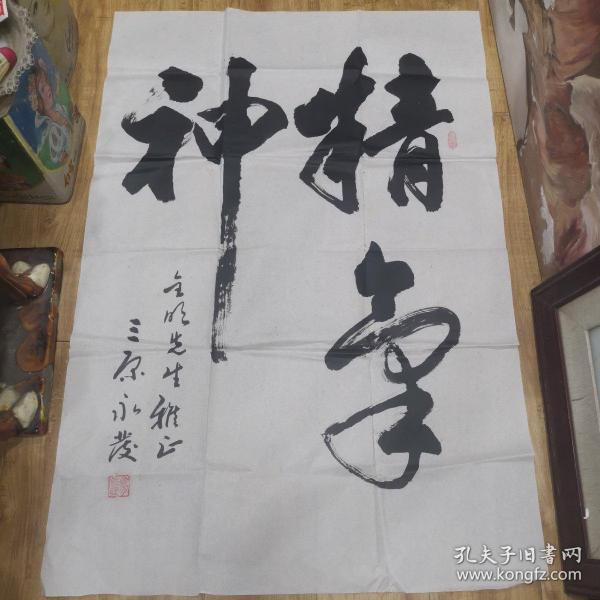 精氣
神
全明先生雅正
三原永發
孔夫子旧书网
www.kongfz.com